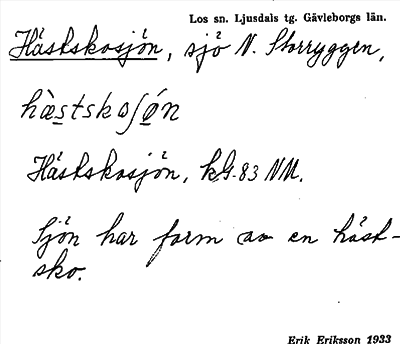 Los sn. Ljusdals tg. Gävleborgs län.
Hästskosjön, sjö N. Storryggen,
hæ̀stskoʃø̀n
Hästskosjön, kG. 83 NM.
Sjön har form av en häst-
sko.
Erik Eriksson 1933